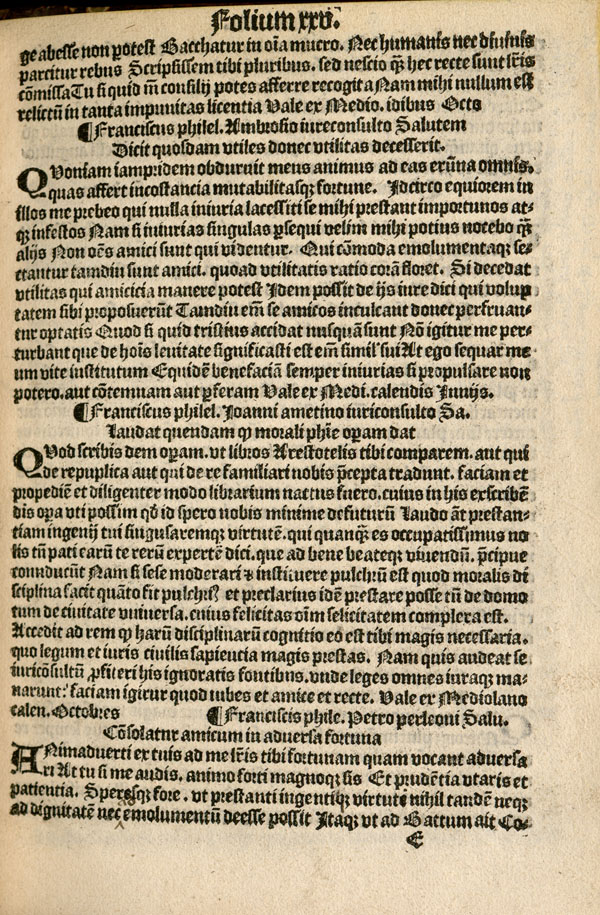 Folium xxv.
ge abesse non potest Bacchatur in oı̄a mucro. Nec humanis nec diuinis
parcitur rebus Scripsissem tibi pluribus. sed nescio qꝫ hec recte sunt lr̄is
cōmissa Tu si quid m̄ consilij potes afferre recogita Nam mihi nullum est
relictū in tanta impunitas licentia Vale ex Medio. idibus Octo
¶ Franciscus philel. Ambrosio iureconsulto Salutem
Dicit quosdam vtiles donec vtilitas decesserit.
QVoniam iampridem obduruit meus animus ad eas erūna omnis.
quas affert incostancia mutabilitasqꝫ fortune. Idcirco equiorem in
illos me prebeo qui nulla iniuria lacessiti se mihi prestant importunos at-
qꝫ infestos Nam si iniurias singulas ꝑsequi velim mihi potius nocebo qꝫ̄
alijs Non oēs amici sunt qui videntur. Qui cōmoda emolumentaqꝫ se-
ctantur tamdiu sunt amici. quoad vtilitatis ratio corā floret. Si decedat
vtilitas qui amicicia manere potest Idem possit de ijs iure dici qui volup
tatem sibi proposuerūt Tamdiu em̄ se amicos inculcant donec perfruan-
tur optatis Quod si quid tristius accidat nusquā sunt Nō igitur me per-
turbant que de hoīs leuitate significasti est em̄ simil' sui At ego sequar me
um vite institutum Equidē benefaciā semper iniurias si propulsare non
potero. aut cōtemnam aut ꝑferam Vale ex Medi. calendis Iunijs.
¶ Franciscus philel. Ioanni ametino iuriconsulto Sa.
Laudat quendam ꝙ morali ph̄ie oꝑam dat
QVod scribis dem oꝑam. vt libros Arestotelis tibi comparem. aut qui
de repuplica aut qui de re familiari nobis p̄cepta tradunt. faciam et
propediē et diligenter modo librarium nactus fuero. cuius in his exscribē
dis oꝑa vti possim qd̄ id spero nobis minime defuturū Laudo āt prestan-
tiam ingenij tui singularemqꝫ virtutē. qui quanqꝫ es occupatissimus no
lis tn̄ pati carū te rerū expertē dici. que ad bene beateqꝫ viuendū. p̄cipue
conducūt Nam si sese moderari ⁊ instituere pulchrū est quod moralis di
sciplina facit quāto fit pulchri? et preclarius idē prestare posse tū de domo
tum de ciuitate vniuersa. cuius felicitas oīm felicitatem complexa est.
Accedit ad rem ꝙ harū disciplinarū cognitio eo est tibi magis necessaria.
quo legum et iuris ciuilis sapiencia magis prestas. Nam quis audeat se
iuricōsultū ꝓfiteri his ignoratis fontibus. vnde leges omnes iuraqꝫ ma-
narunt: faciam igitur quod iubes et amice et recte. Vale ex Mediolano
calen. Octobres ¶ Franciscis phile. Petro perleoni Salu.
Cōsolatur amicum in aduersa fortuna
ANimaduerti ex tuis ad me lr̄is tibi fortunam quam vocant aduersa
ri At tu si me audis. animo forti magnoqꝫ sis Et prudētia vtaris et
patientia. Speresqꝫ fore. vt prestanti ingentiqꝫ virtute nihil tandē neqꝫ
ad dignitatē nec emolumentū deesse possit Itaqꝫ vt ad Battum ait Co-
E